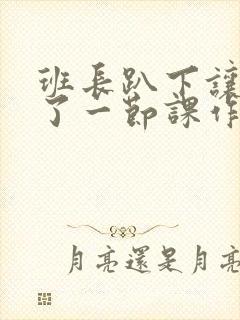 班長趴下讓
了一節課作
月亮還是月亮